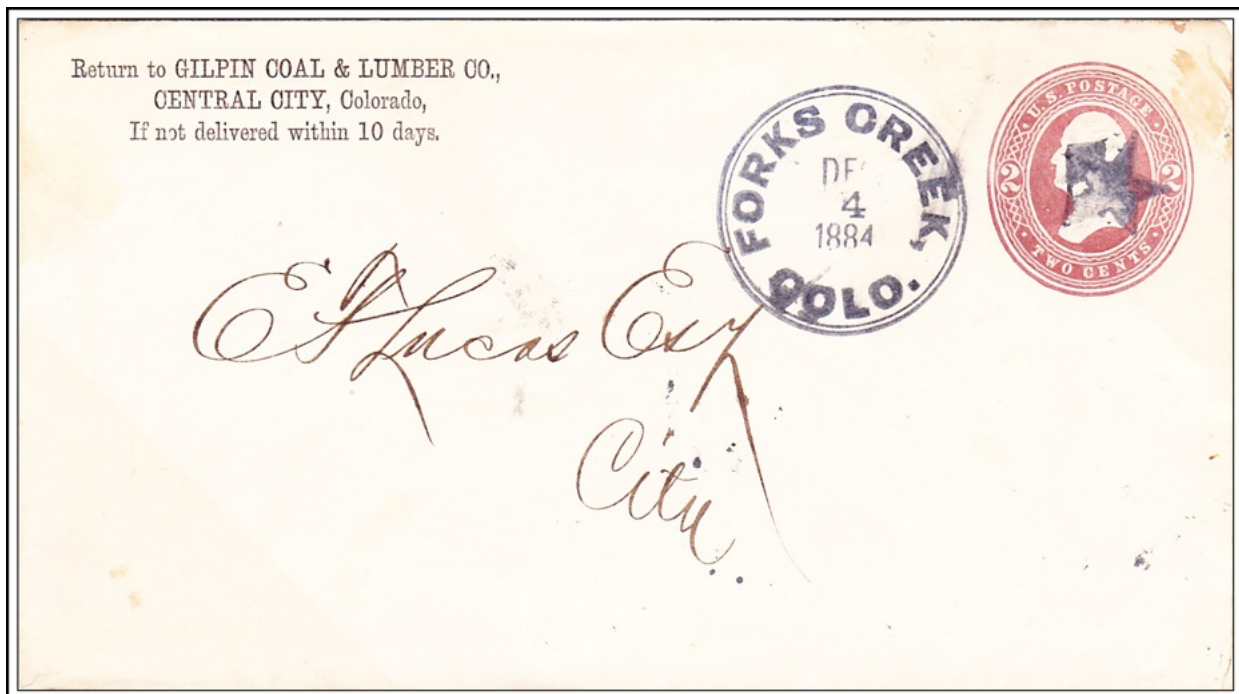 Return to GILPIN COAL & LUMBER CO.,
CENTRAL CITY, Colorado,
If not delivered within 10 days.
FORKS CREEK,
DEC
4
1884
COLO.
U.S. POSTAGE
2 2
TWO CENTS
Lucas Esq
City